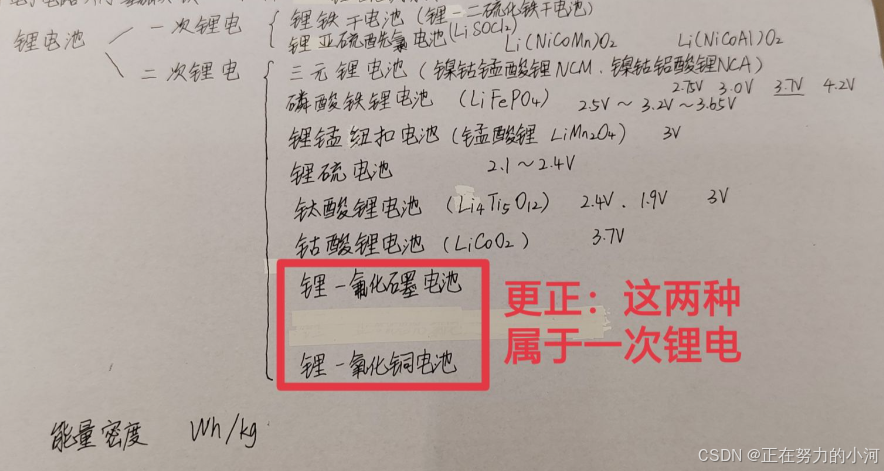 一次锂电 锂铁干电池(锂-二硫化铁干电池)
锂电池 锂亚硫酰氯电池(LiSOCl2) Li(NiCoMn)O2 Li(NiCoAl)O2
二次锂电 三元锂电池(镍钴锰酸锂NCM、镍钴铝酸锂NCA)
2.75V 3.0V 3.7V 4.2V
磷酸铁锂电池 (LiFePO4) 2.5V~3.2V~3.65V
锂锰纽扣电池(锰酸锂 LiMn2O4) 3V
锂硫电池 2.1~2.4V
钛酸锂电池 (Li4Ti5O12) 2.4V、1.9V 3V
钴酸锂电池(LiCoO2) 3.7V
锂-氟化石墨电池
更正：这两种
属于一次锂电
锂-氧化铜电池
能量密度 Wh/kg
CSDN @正在努力的小河